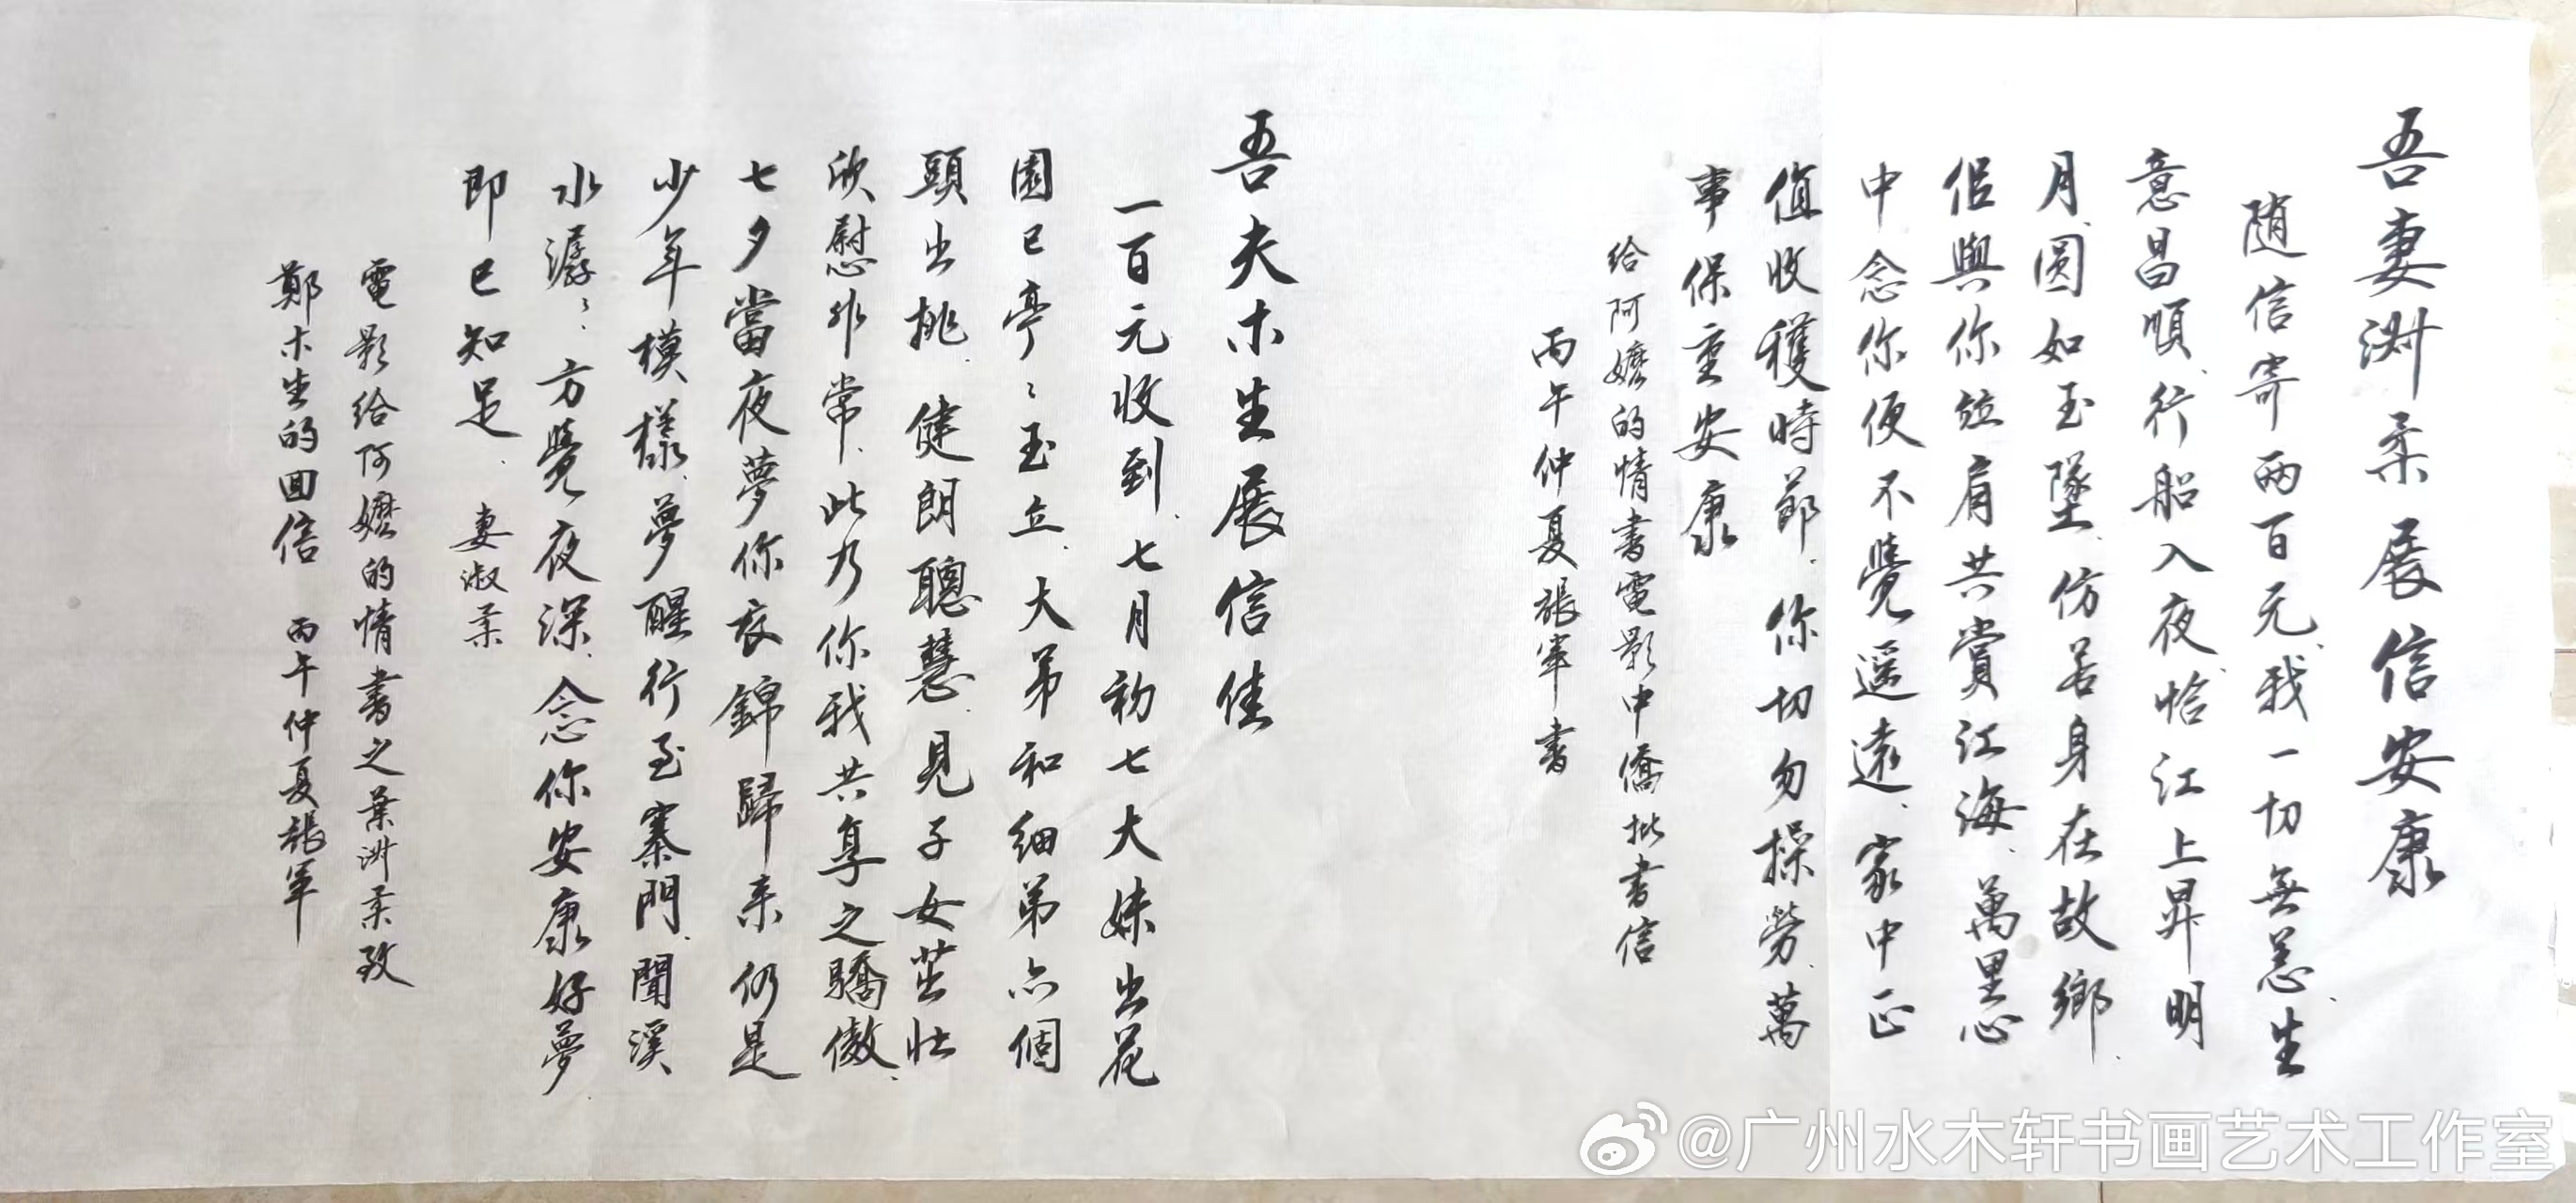 吾妻淑柔展信安康
随信寄两百元、我一切無恙、生
意昌順、行船入夜、恰江上昇明
月、圆如玉墜、仿若身在故鄉、
侣與你竝肩共賞江海、萬里心
中念你便不覺遥遠、家中正
值收穫時節、你切勿操勞、萬
事保重安康
给阿嬤的情書電影中僑批書信
丙午仲夏張軍書
吾夫木生展信佳
一百元收到、七月初七大妹出花
園已亭亭玉立、大弟和细弟六個
頭出挑、健朗聰慧、見子女茁壮
欣慰非常、此乃你我共享之驕傲、
七夕當夜夢你衣錦歸来仍是
少年模樣、夢醒行至寨門、聞溪
水潺々、方覺夜深、念你安康好夢、
即已知足、妻淑柔
電影给阿嬤的情書之葉淑柔致
鄭木生的回信 丙午仲夏張軍
@广州水木轩书画艺术工作室